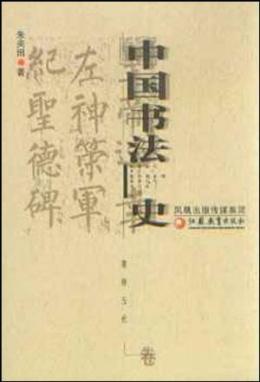 朱关田 著
中国书法史
隋唐五代
卷
左神策軍
紀聖德碑
凤凰出版传媒集团
江苏教育出版社